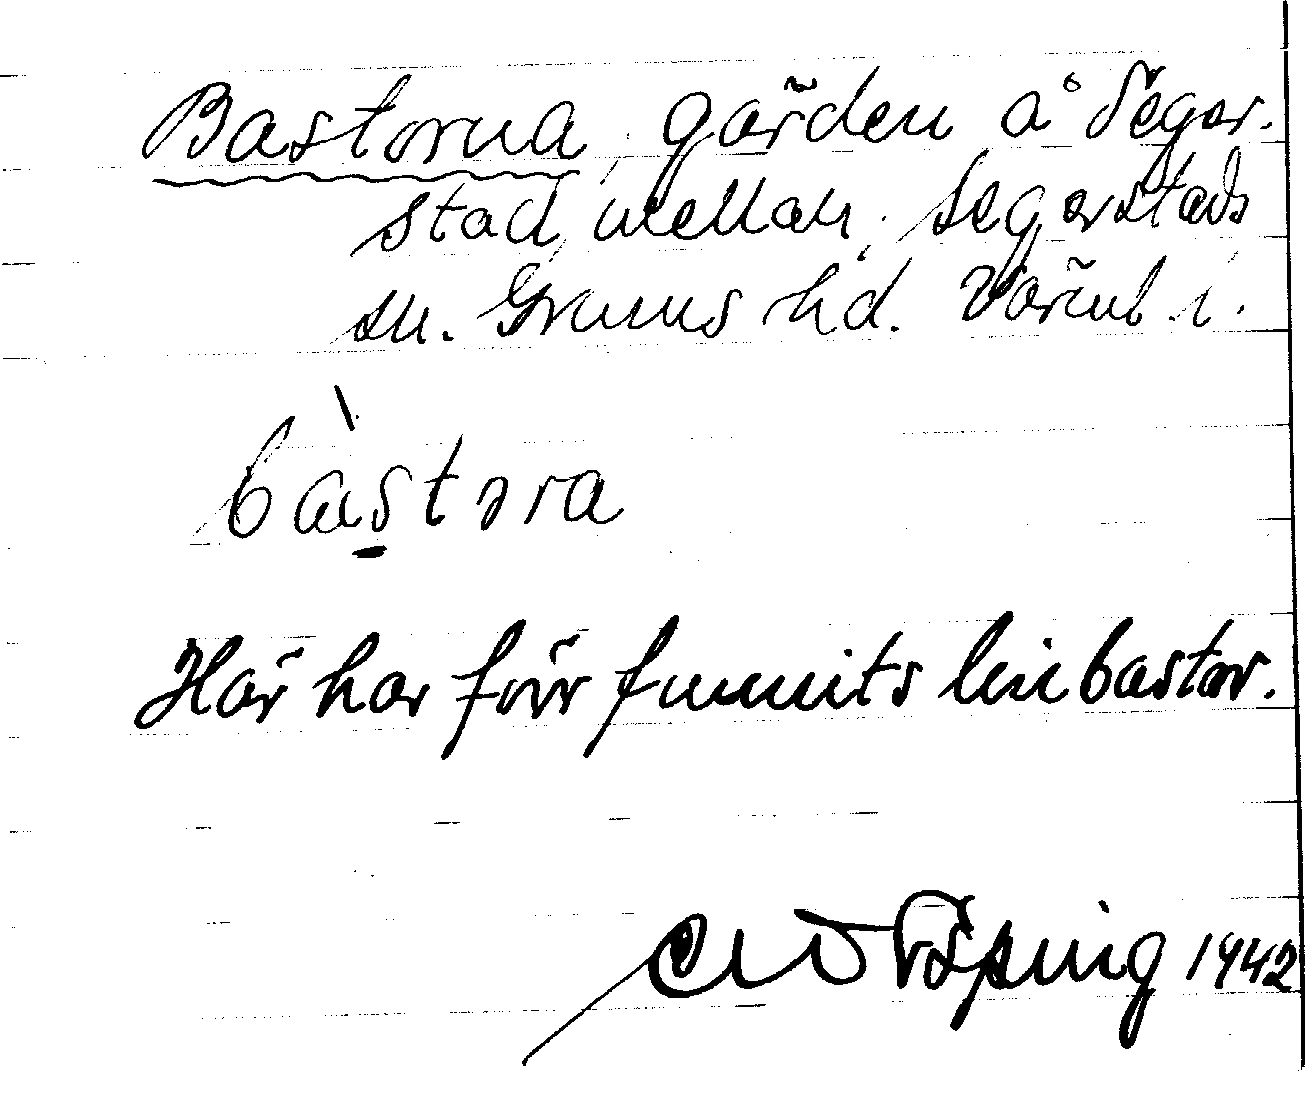 Bastorna, gärden å Seger-
stad, mellan. Segerstads
sn. Grums hd. Värml. l.
bàstəra
Här har förr funnits linbastor.
1942